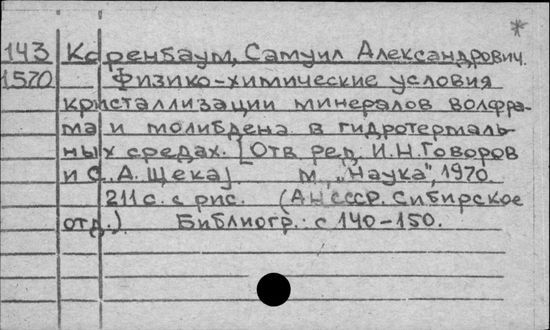 *
143 Коренбаум, Самуил Александрович.
1570 Физико-химические условия
кристаллизации минералов волфра-
ма и молибдена в гидротермаль-
ных средах. [Отв ред. И.Н.Говоров
и С.А. Щека] М., „Наука", 1970
211 с. с рис. (АН СССР. Сибирское
отд.) Библиогр.: с 140-150.